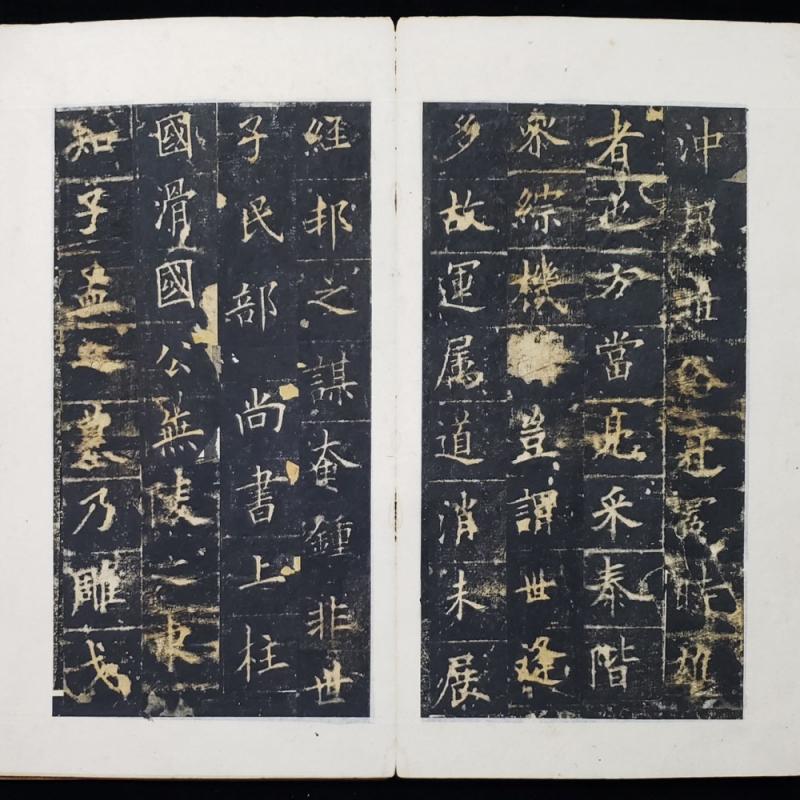 沖
者也方當亮采泰階
綜機豈謂世逢
多故運属道消未展
經邦之謀奄鍾非世
子民部尚書上柱
國滑國公無陵之東
知子孟之墓乃雕戈